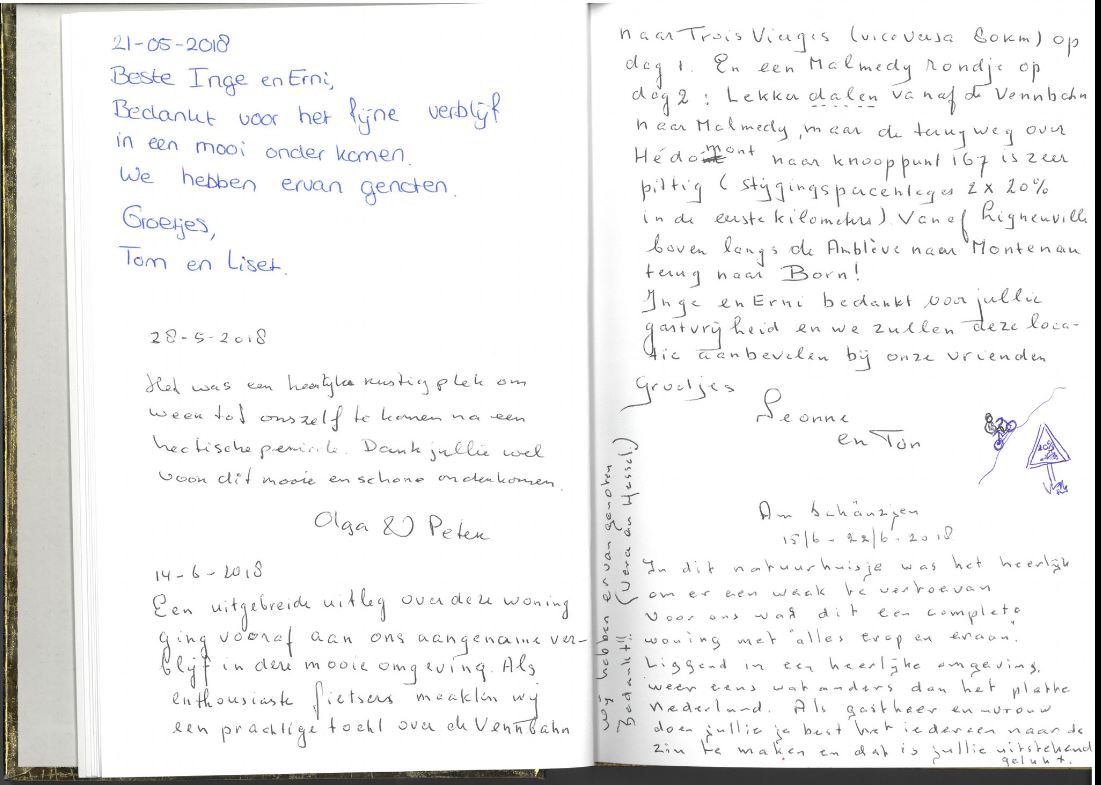 21-05-2018
Beste Inge en Erni,
Bedankt voor het fijne verblijf
in een mooi onder komen.
We hebben ervan genoten.
Groetjes,
Tom en Liset.
28-5-2018
Het was een heerlijke rustig plek om
weer tot onszelf te komen na een
hectische periode. Dank jullie wel
voor dit mooie en schone onderkomen.
Olga & Peter
14-6-2018
Een uitgebreide uitleg over deze woning
ging vooraf aan ons aangename ver-
blijf in deze mooie omgeving. Als
enthousiaste fietsers maakten wij
een prachtige tocht over de Vennbahn
naar Trois Vierges (vice versa 80km) op
dag 1. En een Malmedy rondje op
dag 2: Lekker dalen vanaf de Vennbahn
naar Malmedy, maar de terugweg over
Hédomont naar knooppunt 167 is zeer
pittig (stijgingspercentages 2x 20%
in de eerste kilometers). Vanaf Ligneuville
boven langs de Amblève naar Montenau
terug naar Born!
Inge en Erni bedankt voor jullie
gastvrijheid en we zullen deze loca-
tie aanbevelen bij onze vrienden
Groetjes
Leonne
en Ton
20%
Am Schänzgen
15/6 - 22/6 - 2018
In dit natuurhuisje was het heerlijk
om er een week te vertoevan
Voor ons was dit een complete
woning met "alles erop en eraan."
Liggend in een heerlijke omgeving,
weer eens wat anders dan het platte
Nederland. Als gastheer en vrouw
doen jullie je best het iedereen naar de
zin te maken en dat is jullie uitstekend
gelukt.
Wij hebben ervan genoten
Bedankt!! (Vera en Hessel)